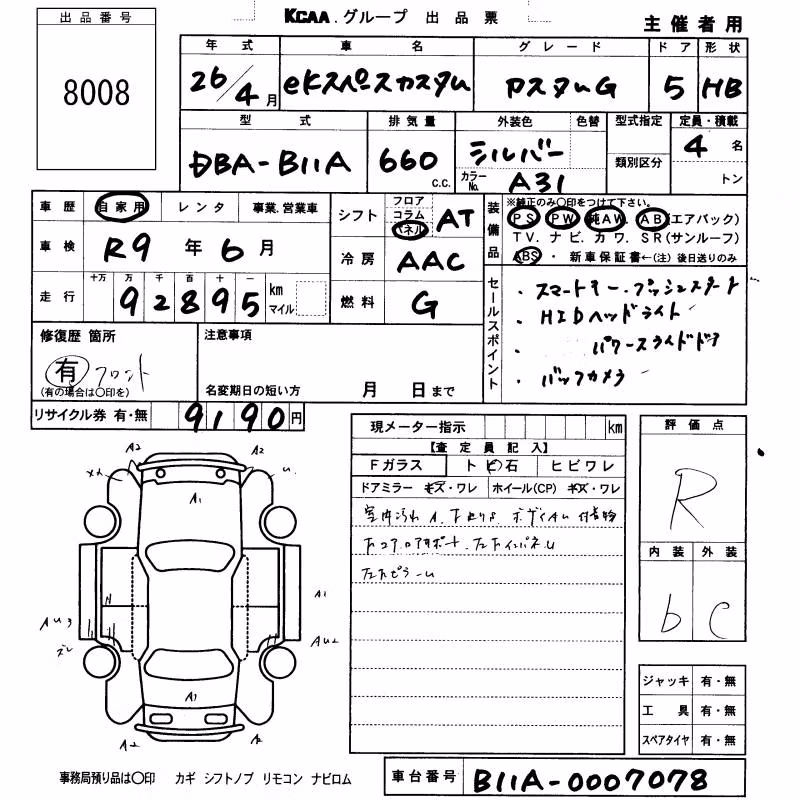 出品番号
8008
KCAA.グループ 出品票
主催者用
年式 車名 グレード ドア 形状
26/4月 eKスペースカスタム カスタムG 5 HB
型式 排気量 外装色 色替 型式指定 定員・積載
DBA-B11A 660 C.C. シルバー 類別区分 4名
カラーNo. A31 トン
車歴 自家用 レンタ 事業.営業車
シフト フロア コラム パネル AT
装備品 ※純正のみ〇印をつけて下さい。
PS PW 純AW. AB(エアバック)
TV. ナビ. カワ. SR(サンルーフ)
ABS・新車保証書←(注) 後日送りのみ
車検 R9年6月
冷房 AAC
走行 十万 万 千 百 十 一
92895 km マイル
燃料 G
セールスポイント
・スマートキー・プッシュスタート
・HIDヘッドライト
・パワースライドドア
・バックカメラ
修復歴 箇所
有 フロント
(有の場合は〇印を)
注意事項
名変期日の短い方 月 日まで
リサイクル券 有・無 9190円
現メーター指示 km
【査定員記入】
Fガラス トビ石 ヒビワレ
ドアミラー キズ・ワレ ホイール(CP) キズ・ワレ
室内汚れ
評価点
R
内装 外装
b c
A2 A2
A1
A1
AU3
AU2
A2 A2
ジャッキ 有・無
工具 有・無
スペアタイヤ 有・無
事務局預り品は〇印 カギ シフトノブ リモコン ナビロム
車台番号 B11A-0007078